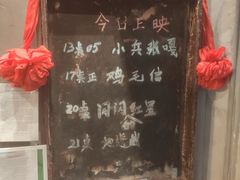 今日上映
13点05 小兵张嘎
17点正 鸡毛信
20点 闪闪红星
21点 地道战